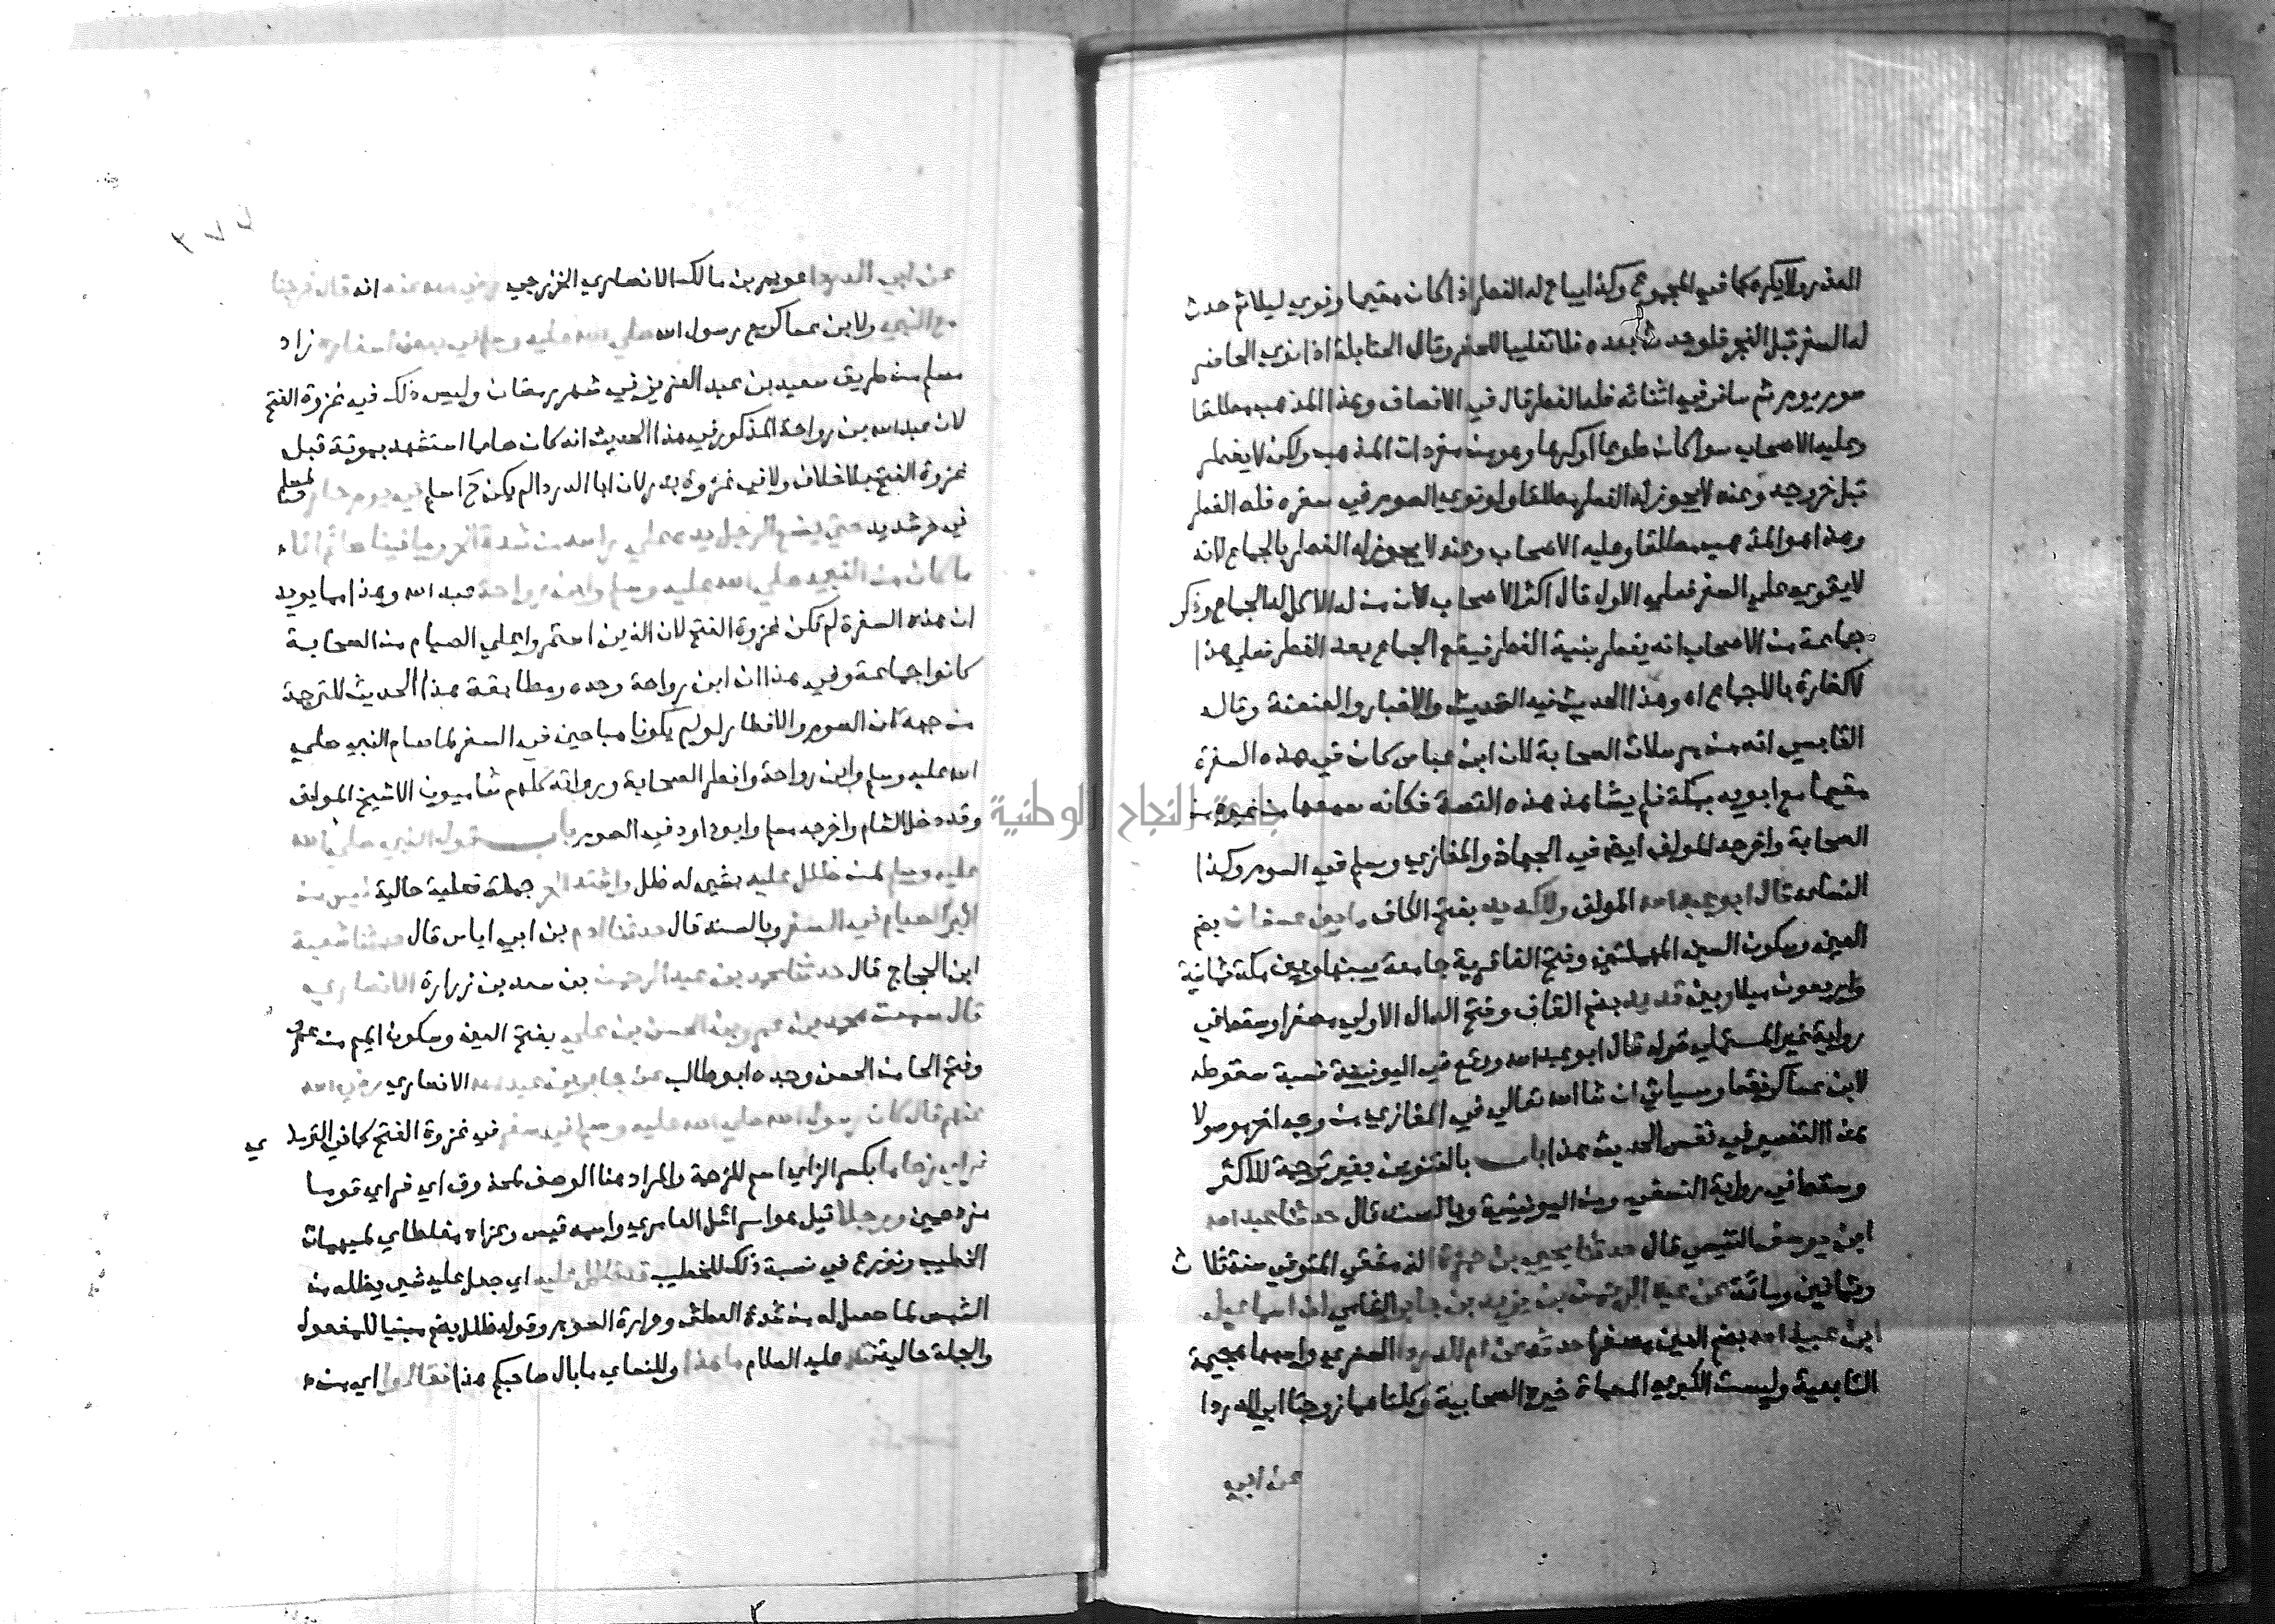 العذر ولا يكره كما في المجموع وكذا يباح له الفطر اذا كان مقيما ونوي ليلا ثم حدث
له السفر قبل الفجر فلو حدث بعده فلا تغليبا للحضر وقال الحنابلة اذا نوي الحاضر
صوم يوم ثم سافر في اثنائه فله الفطر قال في الانصاف وهذا المذهب مطلقا
وعليه الاصحاب سوا كان طوعا او كرها وهو من مفردات المذهب ولكن لا يفطر
قبل خروجه وعنه لا يجوز له الفطر مطلقا ولو نوي الصوم في سفره فله الفطر
وهذا هو المذهب مطلقا وعليه الاصحاب وعنه لا يجوز له الفطر بالجماع لانه
لا يقوي علي السفر فعلي الاول قال اكثر الاصحاب لان من له الاكل له الجماع وذكر
جماعة من الاصحاب انه يفطر بنية الفطر فيقع الجماع بعد الفطر فعلي هذا
لا كفارة بالاجماع اه وهذا الحديث فيه التحديث والاخبار والعنعنة وقال
القابسي انه من مرسلات الصحابة لان ابن عباس كان في هذه السفرة
مقيما مع ابويه بمكة فلم يشاهد هذه القصة فكانه سمعها من غيره من
الصحابة واخرجه المولف ايضا في الجهاد والمغازي ومسلم في الصوم وكذا
النساي قال ابو عبد الله المولف والكديد بفتح الكاف ما بين عسفان بضم
العين وسكون السين المهملتين وفتح الفا قرية جامعة بينها وبين مكة ثمانية
واربعون ميلا وبين قديد بضم القاف وفتح الدال الاولي مصغرا وسقط في
رواية غير المستملي قوله قال ابو عبد الله ووقع في اليونينية نسبة سقوطه
لابن عساكر فقط وسياتي ان شا الله تعالي في المغازي من وجه اخر موصولا
هذا التفسير في نفس الحديث هذا باب بالتنوين بغير ترجمة للاكثر
وسقط في رواية النسفي ومن اليونينية وبالسند قال حدثنا عبد الله
ابن يوسف التنيسي قال حدثنا يحيي بن حمزة الدمشقي المتوفي سنة ثلاث
وثمانين ومائة عن عبد الرحمن بن يزيد بن جابر الشامي ان اسماعيل
ابن عبيد الله بضم العين مصغرا حدثه عن ام الدردا الصغري واسمها هجيمة
التابعية وليست الكبري المسماة خيرة الصحابية وكلتاهما زوجتا ابي الدردا
عن ابي
عن ابي الدردا عويمر بن مالك الانصاري الخزرجي رضي الله عنه انه قال خرجنا
مع النبي ولابن عساكر مع رسول الله صلي الله عليه وسلم في بعض اسفاره زاد
مسلم من طريق سعيد بن عبد العزيز في شهر رمضان وليس ذلك في غزوة الفتح
لان عبد الله بن رواحة المذكور في هذا الحديث انه كان صايما استشهد بموتة قبل
غزوة الفتح بلا خلاف ولا في غزوة بدر لان ابا الدردا لم يكن ح اسلم في يوم حار ولمسلم
في حر شديد حتي يضع الرجل يده علي راسه من شدة الحر وما فينا صائم الا
ما كان من النبي صلي الله عليه وسلم وابن رواحة عبد الله وهذا مما يويد
ان هذه السفرة لم تكن غزوة الفتح لان الذين استمروا علي الصيام من الصحابة
كانوا جماعة وفي هذا ان ابن رواحة وحده ومطابقة هذا الحديث للترجمة
من جهة ان الصوم والافطار لو لم يكونا مباحين في السفر لما صام النبي صلي
الله عليه وسلم وابن رواحة وافطر الصحابة ورواته كلهم شاميون الا شيخ المولف
وقد دخل الشام واخرجه مسلم وابو داود في الصوم باب قول النبي صلي الله
عليه وسلم لمن ظلل عليه بشي له ظل واشتد الحر جملة فعلية حالية ليس من
البر الصيام في السفر وبالسند قال حدثنا ادم بن ابي اياس قال حدثنا شعبة
ابن الحجاج قال حدثنا محمد بن عبد الرحمن بن سعد بن زرارة الانصاري
قال سمعت محمد بن عمرو بن الحسن بن علي بفتح العين وسكون الميم من عمرو
وفتح الحا من الحسن وجده ابو طالب عن جابر بن عبد الله الانصاري رضي الله
عنهم قال كان رسول الله صلي الله عليه وسلم في سفر في غزوة الفتح كما في الترمذي
فراي زحاما بكسر الزاي اسم للزحمة والمراد هنا الوصف لمحذوف اي فراي قوما
مزدحمين ورجلا قيل هو ابو اسرائيل العامري واسمه قيس وعزاه مغلطاي لمبهمات
الخطيب ونوزع في نسبة ذلك للخطيب قد ظلل عليه اي جعل عليه شي يظلله من
الشمس لما حصل له من شدة العطش وحرارة الصوم وقوله ظلل بضم مبنيا للمفعول
والجملة حالية فقال عليه السلام ما هذا وللنساي ما بال صاحبكم هذا فقالوا اي من
جامعة النجاح الوطنية